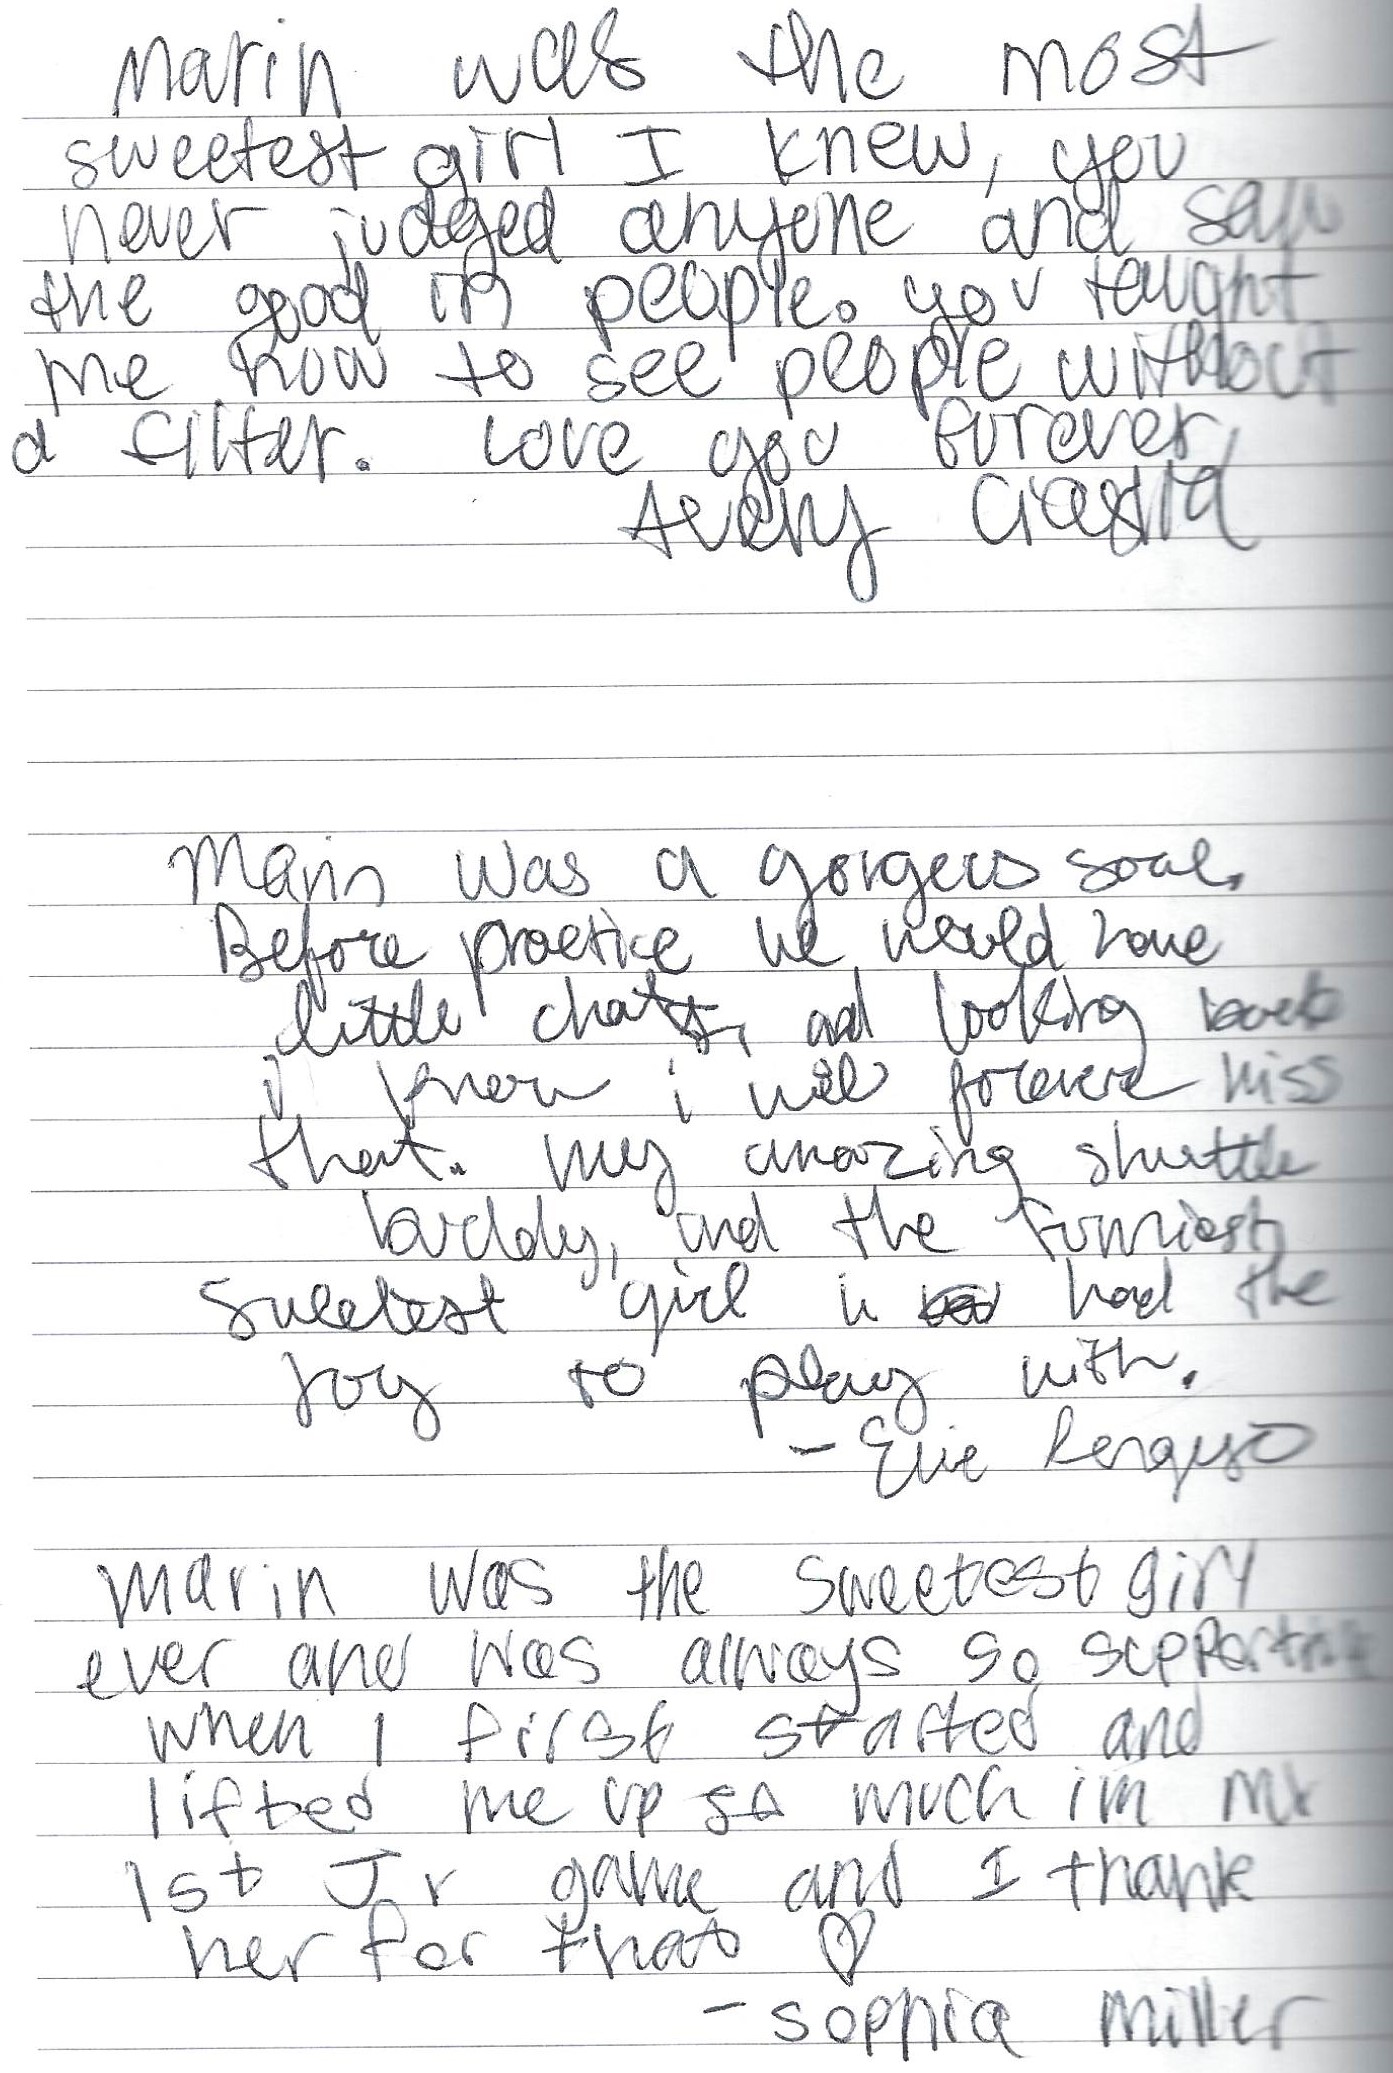 Marin was the most
sweetest girl I knew, you
never judged anyone and saw
the good in people. you taught
me how to see people without
a filter. Love you furever,
Avery
Marin was a gorgeus soul.
Before practice we would have
little chats, and looking back
i know i will forever miss
that. my amazing shuttle
buddy, and the funniest,
sweetest girl i had the
joy to play with.
- Evie Ferguso
Marin was the sweetest girl
ever and was always so supportive
when I first started and
lifted me up so much im my
1st Jr game and I thank
her for that ♡
- sophia Miller